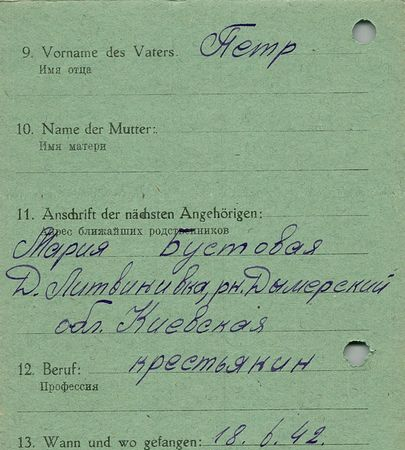 9. Vorname des Vaters. Петр
Имя отца
10. Name der Mutter:
Имя матери
11. Anschrift der nächsten Angehörigen:
Адрес ближайших родственников
Мария Бустовая
Д. Литвинивка, рн. Дымерский
обл. Киевская
12. Beruf: крестьянин
Профессия
13. Wann und wo gefangen: 18. 6. 42.